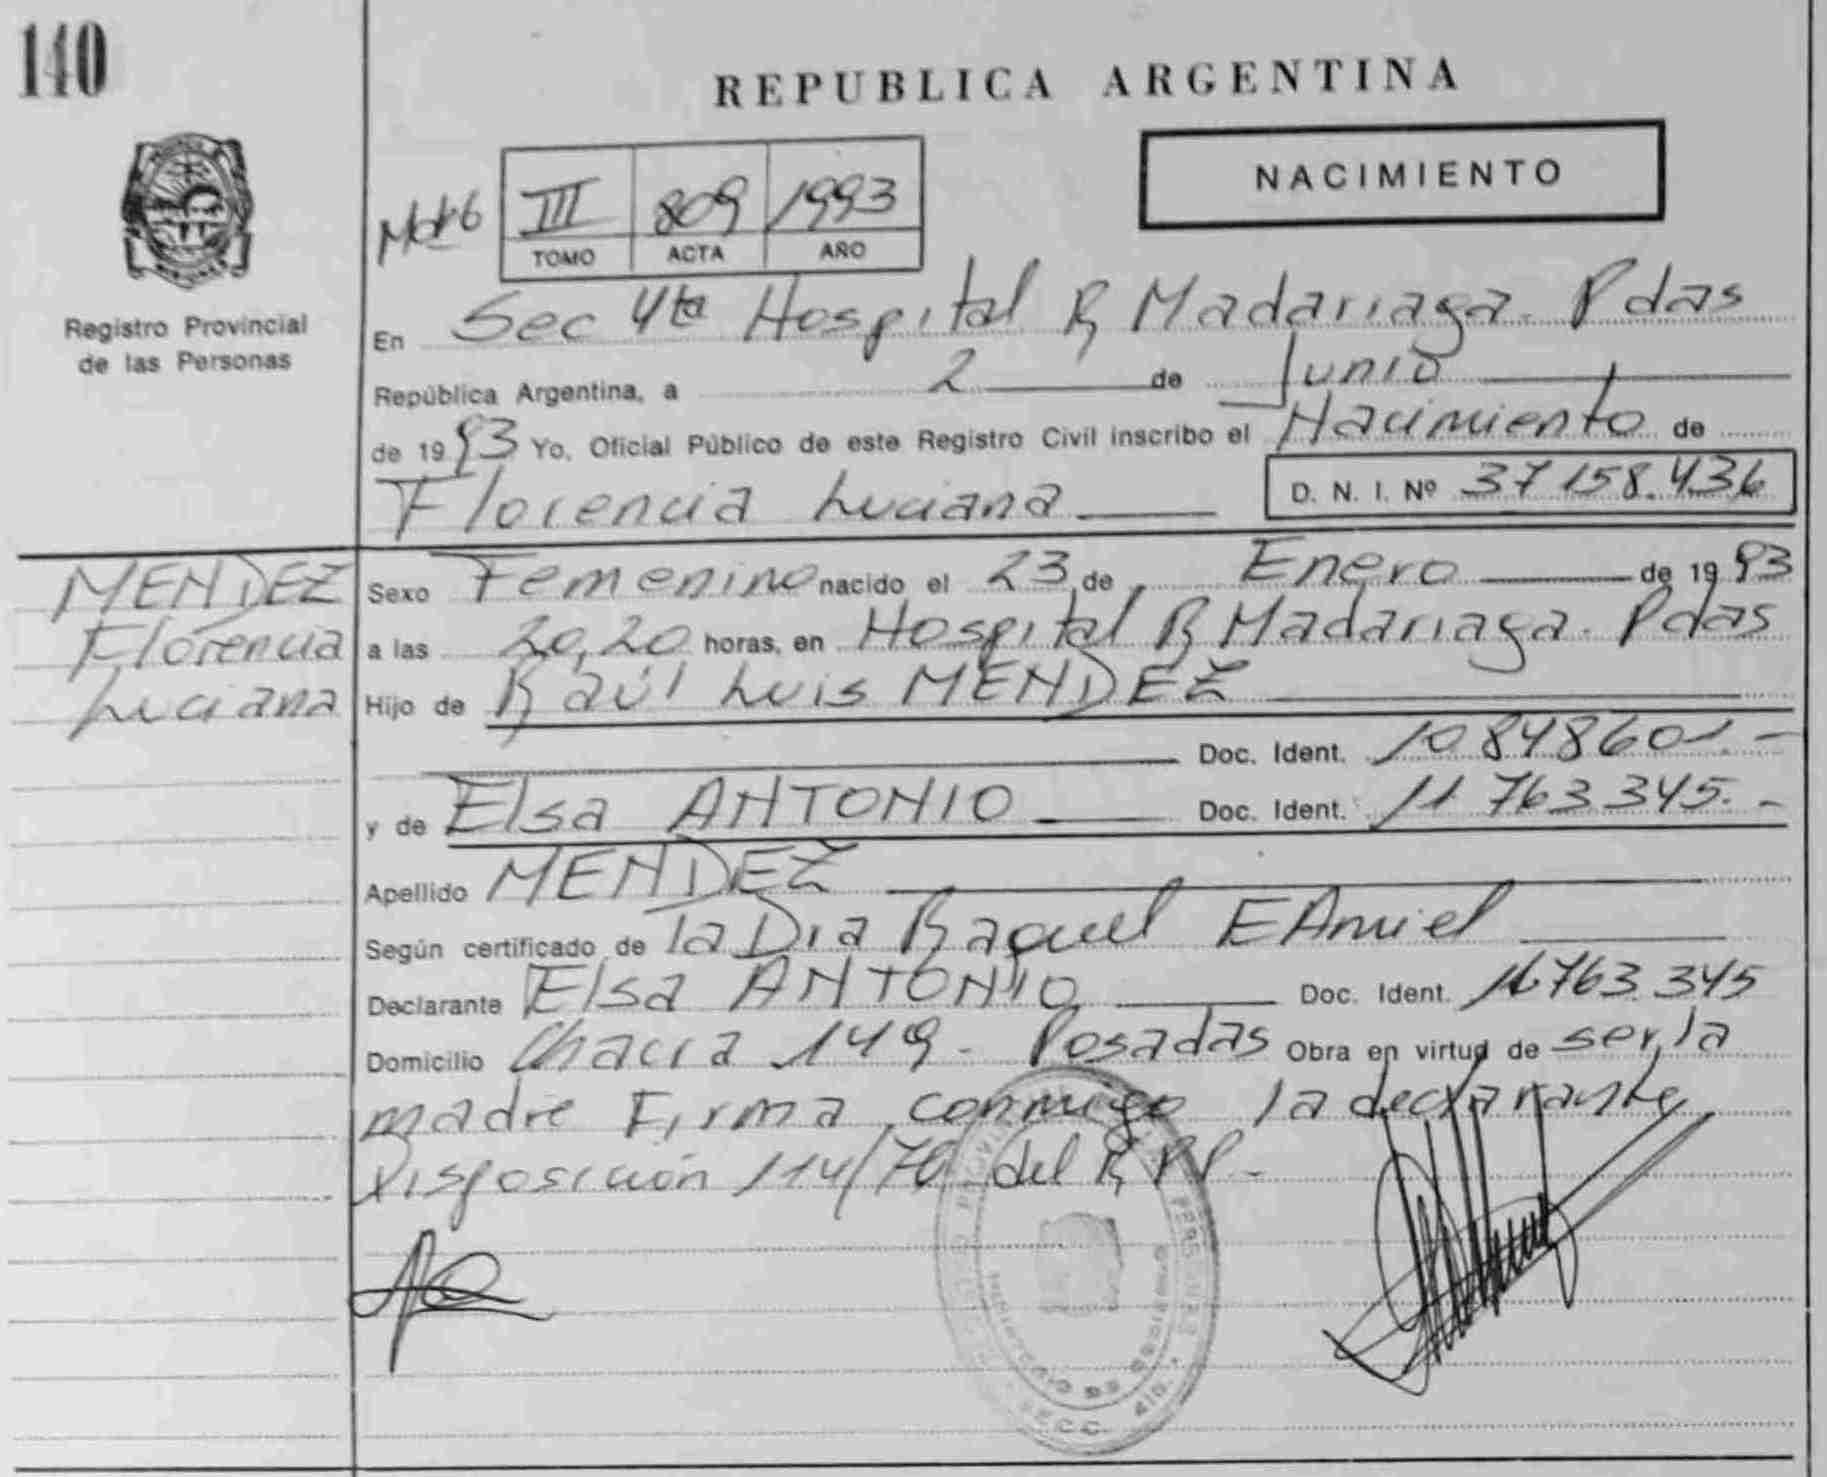 140
REPUBLICA ARGENTINA
NACIMIENTO
III 809 1993
TOMO ACTA AÑO
Registro Provincial
de las Personas
En Sec 4ta Hospital R Madariaga. Pdas
República Argentina, a 2 de Junio
de 1993 Yo, Oficial Público de este Registro Civil inscribo el Nacimiento de
Florencia Luciana D. N. I. Nº 37158.436
MENDEZ
Florencia
Luciana
Sexo Femenino nacido el 23 de Enero de 1993
a las 20,20 horas, en Hospital R Madariaga. Pdas
Hijo de Raúl Luis MENDEZ
Doc. Ident. 10848601.-
y de Elsa ANTONIO Doc. Ident. 11 763.345.-
Apellido MENDEZ
Según certificado de la Dra Raquel E Amiel
Declarante Elsa ANTONIO Doc. Ident. 11763.345
Domicilio Chacra 149. Posadas Obra en virtud de ser la
madre Firma conmigo la declarante
Disposición 114/70 del R P P.-